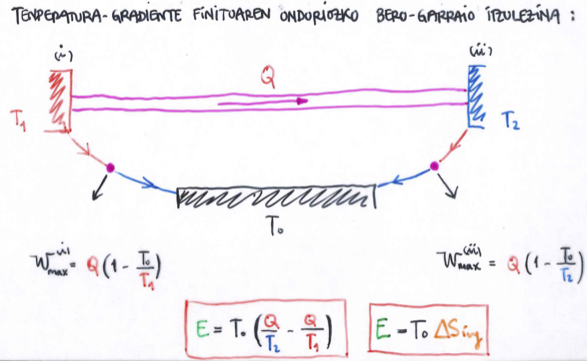 TENPERATURA-GRADIENTE FINITUAREN ONDORIOZKO BERO-GARRAIO ITZULEZINA :
(i) (ii)
Q
T₁ T₂
T₀
W_max^(i) = Q (1 - T₀/T₁) W_max^(ii) = Q (1 - T₀/T₂)
E = T₀ (Q/T₂ - Q/T₁) E = T₀ ΔS_ing